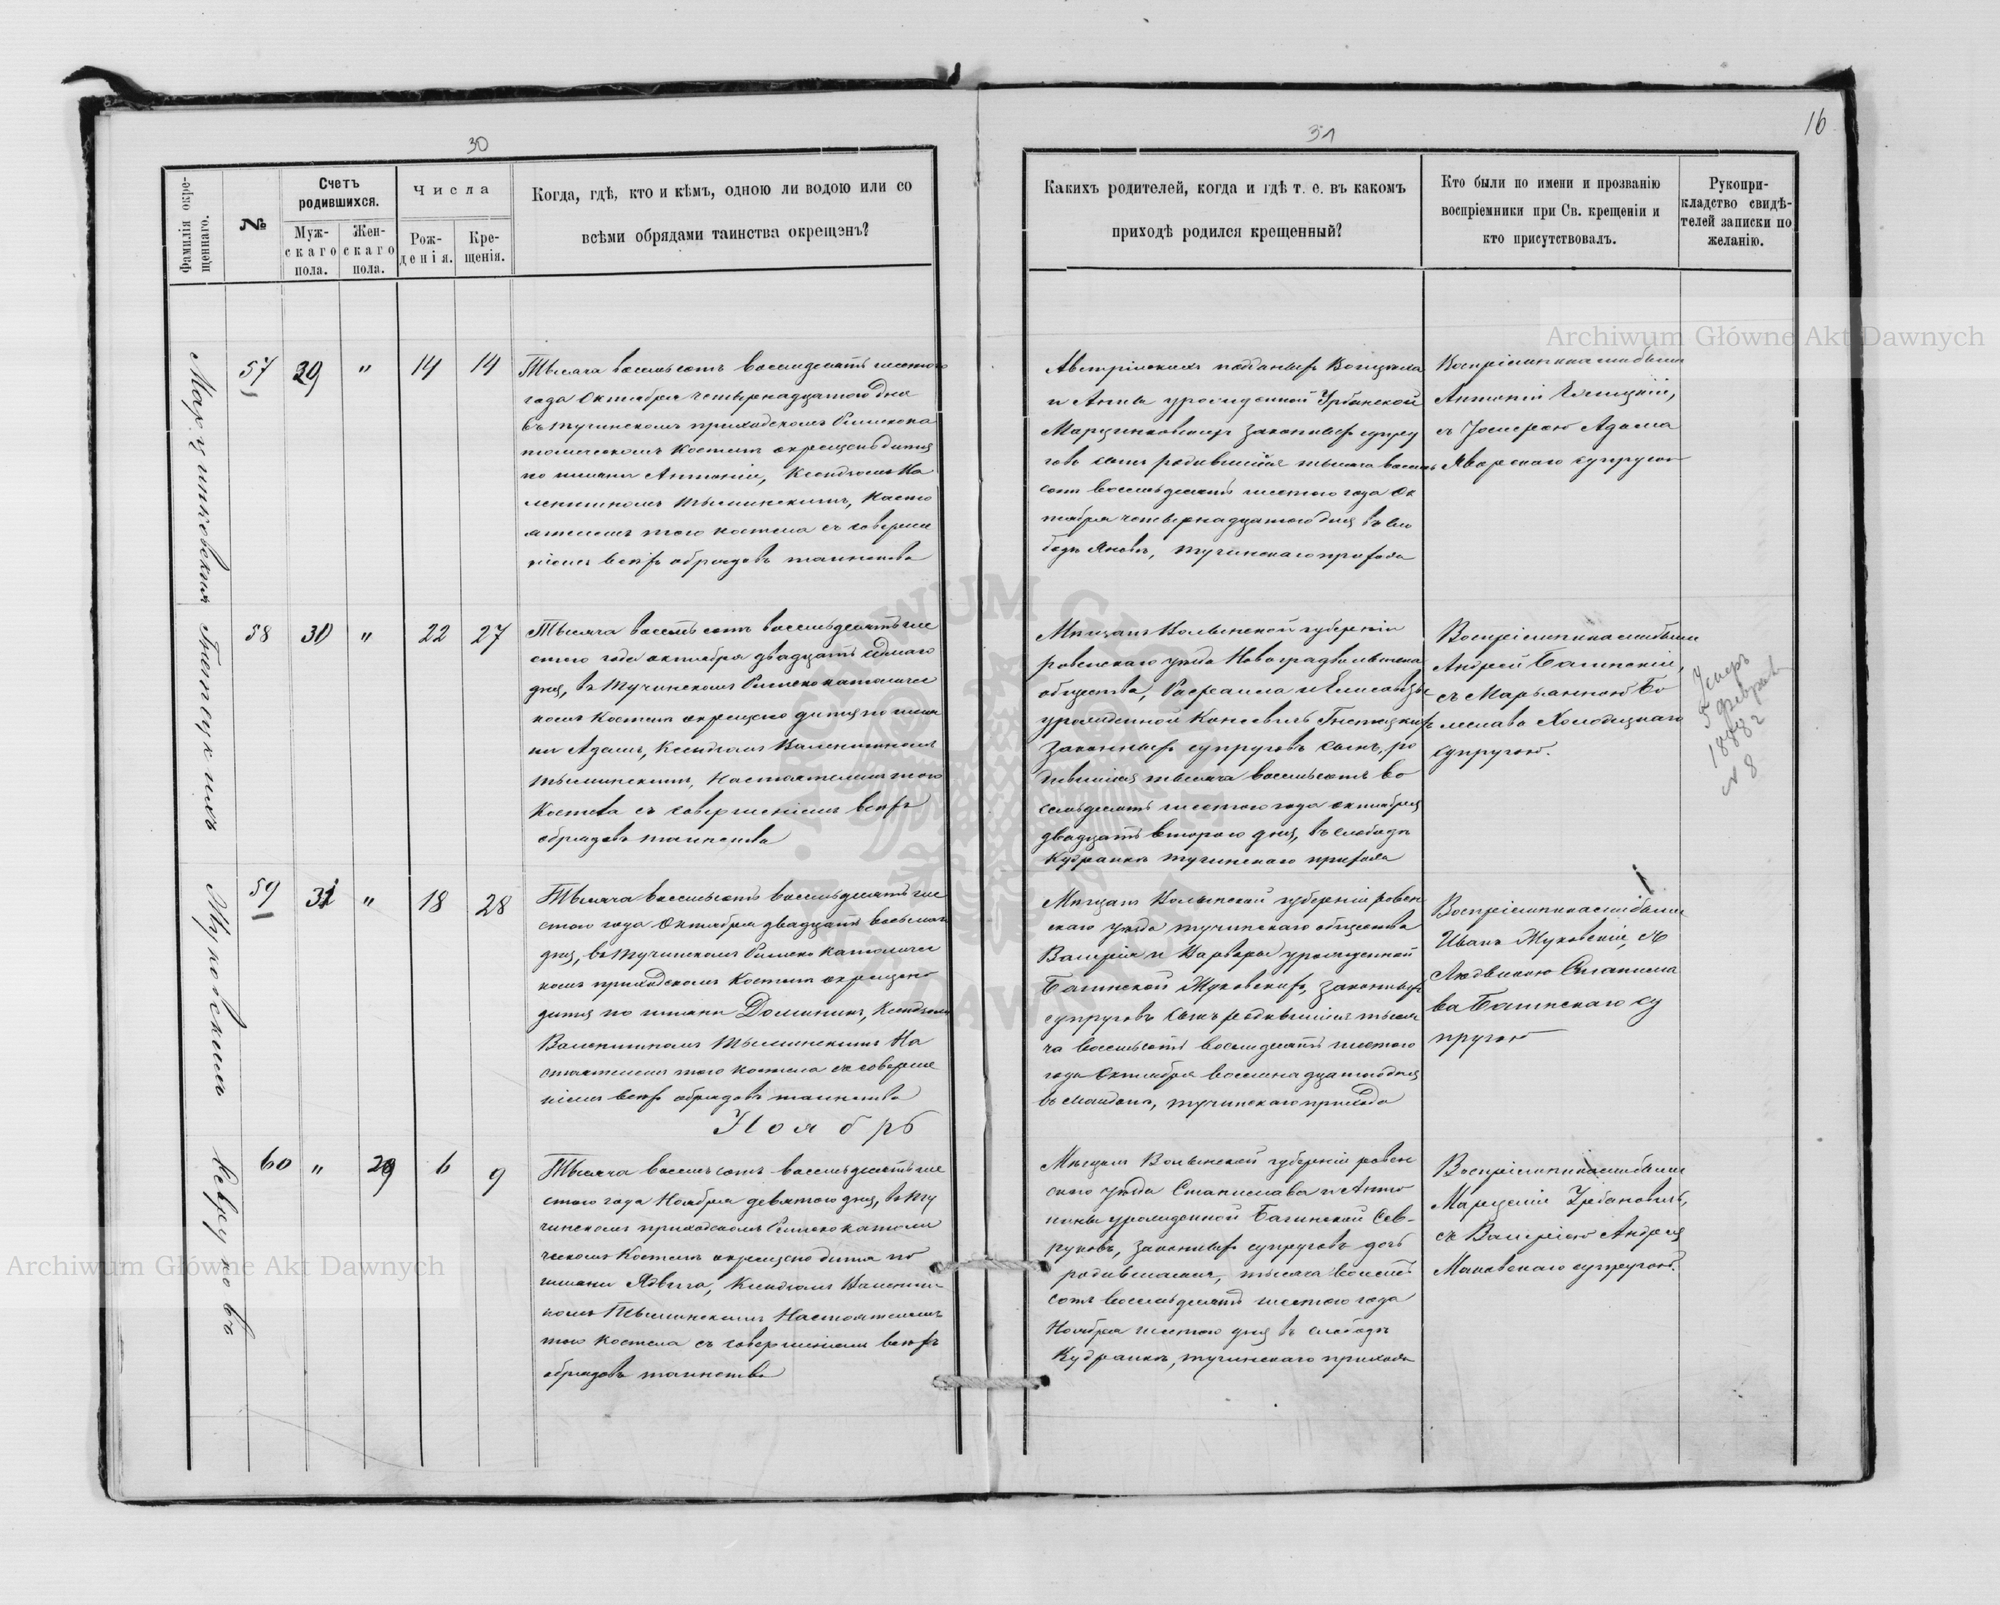 30
Фамилія окре-
щеннаго.
№
Счетъ
родившихся.
Муж-
скаго
пола.
Жен-
скаго
пола.
Числа
Рож-
денія.
Кре-
щенія.
Когда, гдѣ, кто и кѣмъ, одною ли водою или со
всѣми обрядами таинства окрещэнъ?
57 29 " 14 14
Тысяча восемьсотъ восемдесятъ шестого
года Октября четырнадцатого дня
въ Тучинскомъ приходскомъ Римско ка
толическомъ Костелѣ окрещено дитя
по имени Антоній, Ксендзомъ Ва
лентиномъ Тысминскимъ, Насто
ятелемъ того костела съ соверше
ніемъ всѣхъ обрядовъ таинства
58 30 " 22 27
Тысяча восемьсотъ восемьдесятъ ше
стого года октября двадцатъ седмаго
дня, въ Тучинскомъ Римско католичес
комъ Костелѣ окрещено дитя по име
ни Адамъ, Ксендзомъ Валентиномъ
Тысминскимъ, Настоятелемъ того
Костела съ совершеніемъ всѣхъ
обрядовъ таинства
Жуковскій
59 31 " 18 28
Тысяча восемьсотъ восемьдесятъ ше
стого года Октября двадцатъ восьмого
дня, въ Тучинскомъ Римско Католичес
комъ приходскомъ Костелѣ окрещено
дитя по имени Доминикъ, Ксендзомъ
Валентиномъ Тысминскимъ На
стоятелемъ того костела съ соверше
ніемъ всѣхъ обрядовъ таинства
Ноябрь
60 " 29 6 9
Тысяча восемьсотъ восемьдесятъ ше
стого года Ноября девятого дня, въ Ту
чинскомъ приходскомъ Римско католи
ческомъ Костелѣ окрещено дитя по
имени Ядвига, Ксендзомъ Валенти
номъ Тысминскимъ Настоятелемъ
того костела съ совершеніемъ всѣхъ
обрядовъ таинства
31
16
Какихъ родителей, когда и гдѣ т. е. въ какомъ
приходѣ родился крещенный?
Кто были по имени и прозванію
воспріемники при Св. крещеніи и
кто присутствовалъ.
Рукопри-
кладство свидѣ-
телей записки по
желанію.
Австрійскихъ подданныхъ Войцеха
и Анны урожденной Урбанской
Марцинковскихъ законныхъ супру
говъ сынъ родившійся тысяча восемь
сотъ восемьдесятъ шестого года Ок
тября четырнадцатого дня въ сло
бодѣ Яновкѣ, Тучинскаго прихода
Воспріемниками были
Антоній
съ Адама
Яворскаго супругою
Мѣщанъ Волынской губерніи
ровенскаго уѣзда Новоградволынскаго
общества, Рафаила и Елисаветы
урожденной
законныхъ супруговъ сынъ, ро
дившійся тысяча восемьсотъ во
семьдесятъ шестого года октября
двадцатъ второго дня, въ слободѣ
Кудранкѣ Тучинскаго прихода
Воспріемниками были
Андрей Багинскій,
съ Марьянною Бо
леслава Холодецкаго
супругою.
Умеръ
5 февраля
1888 г
№ 8
Мѣщанъ Волынской губерніи ровен
скаго уѣзда Тучинскаго общества
Валерія и Варвары урожденной
Багинской Жуковскихъ, законныхъ
супруговъ сынъ родившійся тыся
ча восемьсотъ восемдесятъ шестого
года Октября восемнадцатого дня
въ Тучинскаго прихода
Воспріемниками были
Иванъ Жуковскій, съ
Людвикою Станисла
ва Багинскаго су
пругою
Мѣщанъ Волынской губерніи ровен
скаго уѣзда Станислава и Анто
нины урожденной Багинской Сев-
руковъ, законныхъ супруговъ дочь
родившаяся, тысяча восемь
сотъ восемьдесятъ шестого года
Ноября шестого дня въ слободѣ
Кудранкѣ, Тучинскаго прихода
Воспріемниками были
Марцелій Урбановичъ,
съ Валеріею Андрея
Маковскаго супругою.
Archiwum Główne Akt Dawnych
Archiwum Główne Akt Dawnych